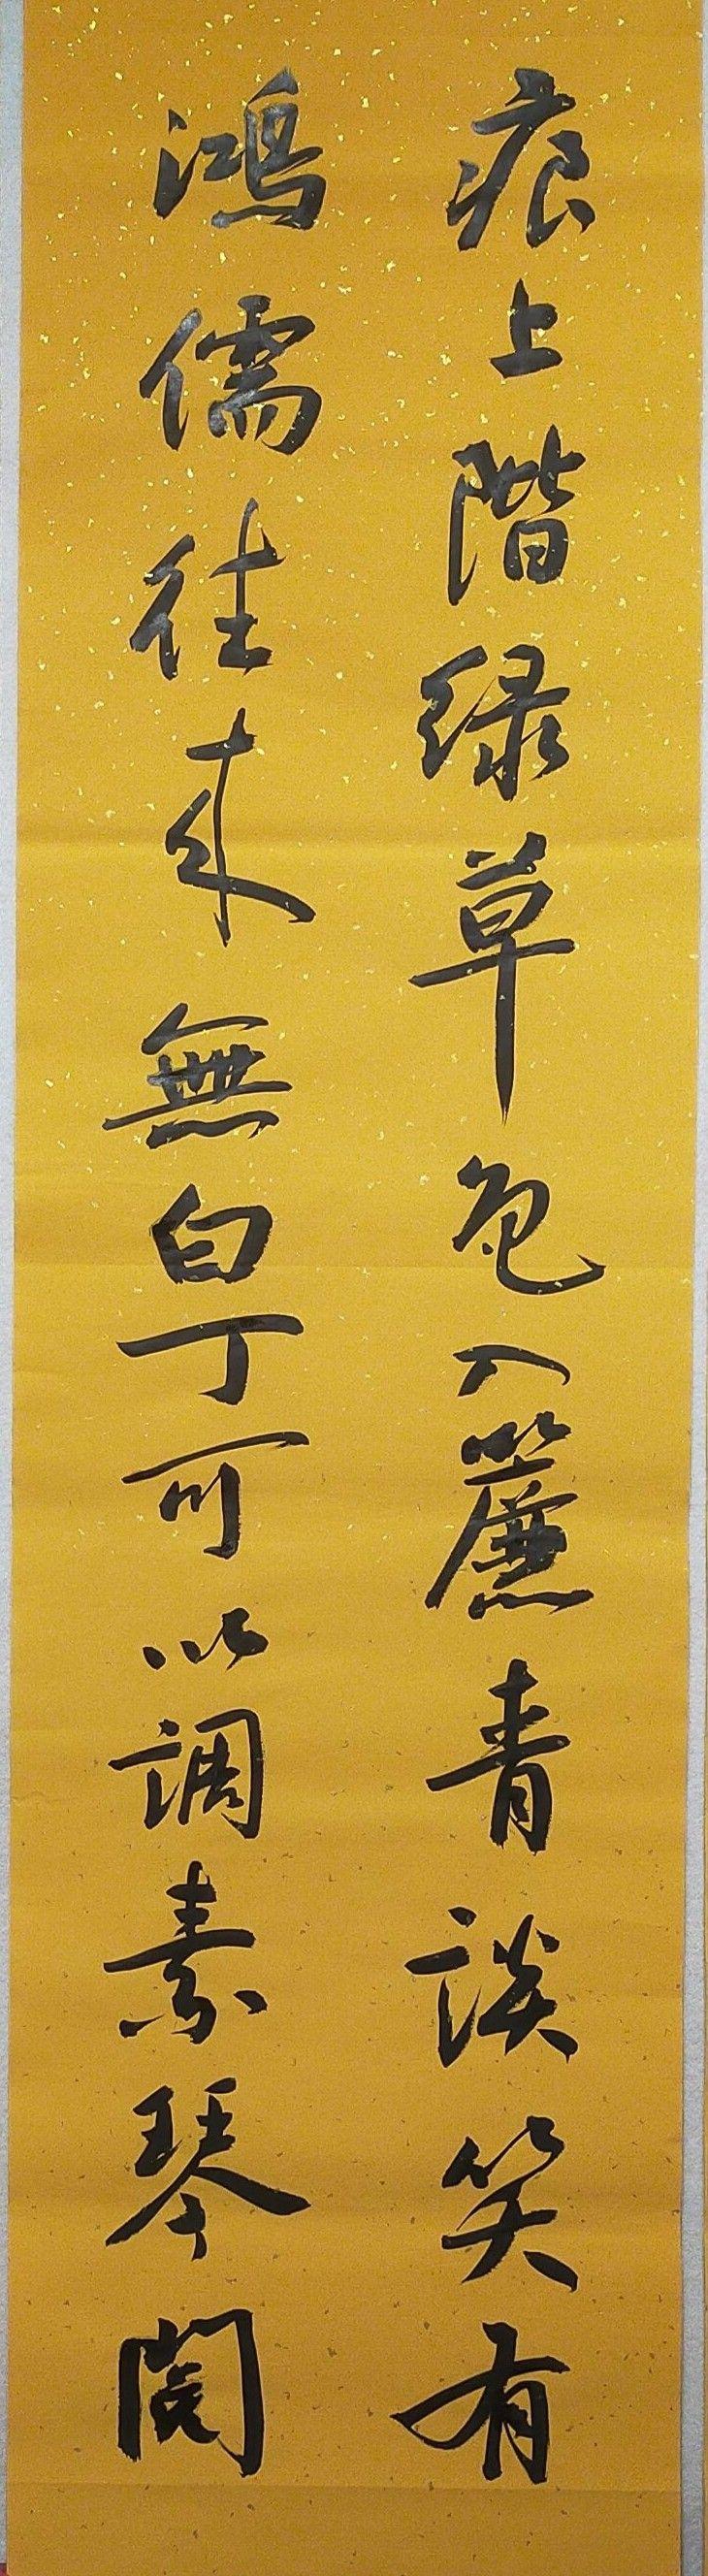 痕上階绿草色入簾青談笑有
鴻儒往来無白丁可以調素琴閲